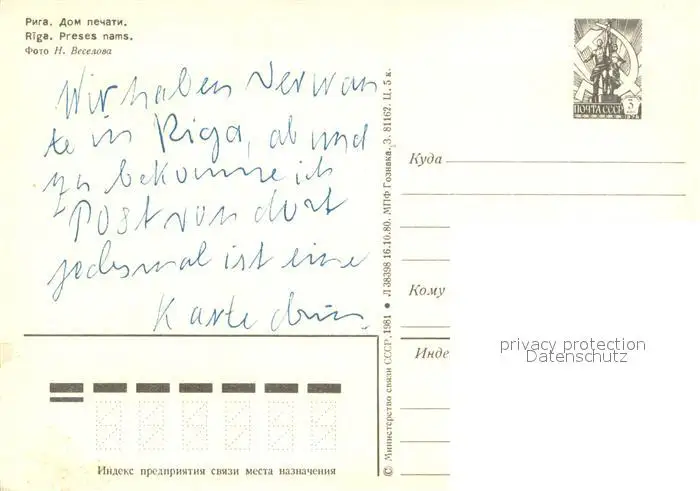 Рига. Дом печати.
Rīga. Preses nams.
Фото Н. Веселова
Wir haben Verwan
te in Riga, ab und
zu bekomme ich
Post von dort
jedesmal ist eine
Karte drin.
ПОЧТА СССР
Куда
Кому
Инде
privacy protection
Datenschutz
Индекс предприятия связи места назначения
© Министерство связи СССР. 1981 ● Л 38398 16.10.80. МПФ Гознака. З. 81162. Ц. 5 к.